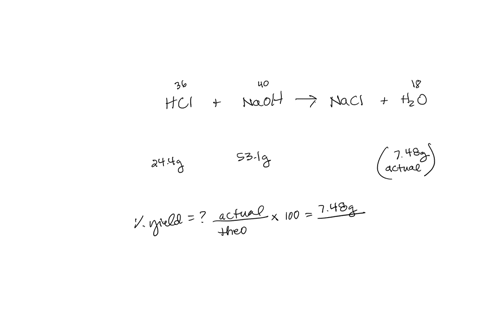 36 40 18
HCl + NaOH → NaCl + H₂O
24.4g 53.1g (7.48g
actual)
% yield = ? actual/theo × 100 = 7.48g